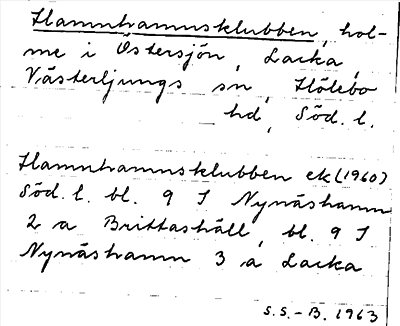 Hamnhamnsklubben, hol-
me i Östersjön, Lacka,
Västerljungs sn, Hölebo
hd, Söd. l.
Hamnhamnsklubben ek (1960)
Söd. l. bl. 9 I Nynäshamn
2 a Brittashäll, bl. 9 I
Nynäshamn 3 a Lacka
S.S.-B. 1963